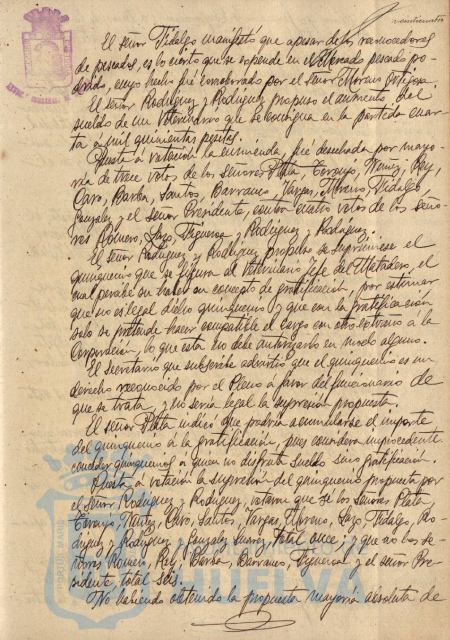 veinticuatro
El señor Vidalgo manifestó que apesar de los reconocedores
de pescados, es lo cierto que se expende en el Mercado pescado po-
drido, cuyo hecho fué corroborado por el señor Moreno Ortega.
El señor Rodríguez y Rodríguez propuso el aumento del
sueldo de un Veterinario que se consigna en la partida cuar-
ta en mil quinientas pesetas.
Puesta a votación la enmienda, fué desechada por mayo-
ría de trece votos de los señores Plata, Terrojo, Núñez, Rey,
Caro, Barba, Santos, Barranco, Vargas, Moreno, Vidalgo,
González y el señor Presidente, contra cuatro votos de los seño-
res Romero, Lazo, Figueroa, Rodríguez y Rodríguez.
El señor Rodríguez y Rodríguez, propuso se suprimiese el
quinquenio que se figura al Veterinario Jefe del Matadero, el
cual percibe su haber en concepto de gratificación, por estimar
que no es legal dicho quinquenio y que con la gratificación
solo se pretende hacer compatible el cargo con otro extraño a la
Corporación, lo que esta no debe autorizarlo en modo alguno.
El Secretario que subscribe advirtió que el quinquenio es un
derecho reconocido por el Pleno a favor del funcionario de
que se trata y no sería legal la supresión propuesta.
El señor Plata indicó que podría acumularse el importe
del quinquenio a la gratificación, pues considera improcedente
conceder quinquenios a quien no disfruta sueldo sino gratificación
Puesta a votación la supresión del quinquenio propuesta por
el señor Rodríguez y Rodríguez, votaron que si los señores Plata
Terrojo, Núñez, Caro, Santos, Vargas, Moreno, Lazo, Vidalgo, Ro-
dríguez y Rodríguez, González Suárez, total once; y que no los se-
ñores Romero, Rey, Barba, Barranco, Figueroa y el señor Pre-
sidente, total seis.
No habiendo obtenido la propuesta mayoría absoluta de
HUELVA